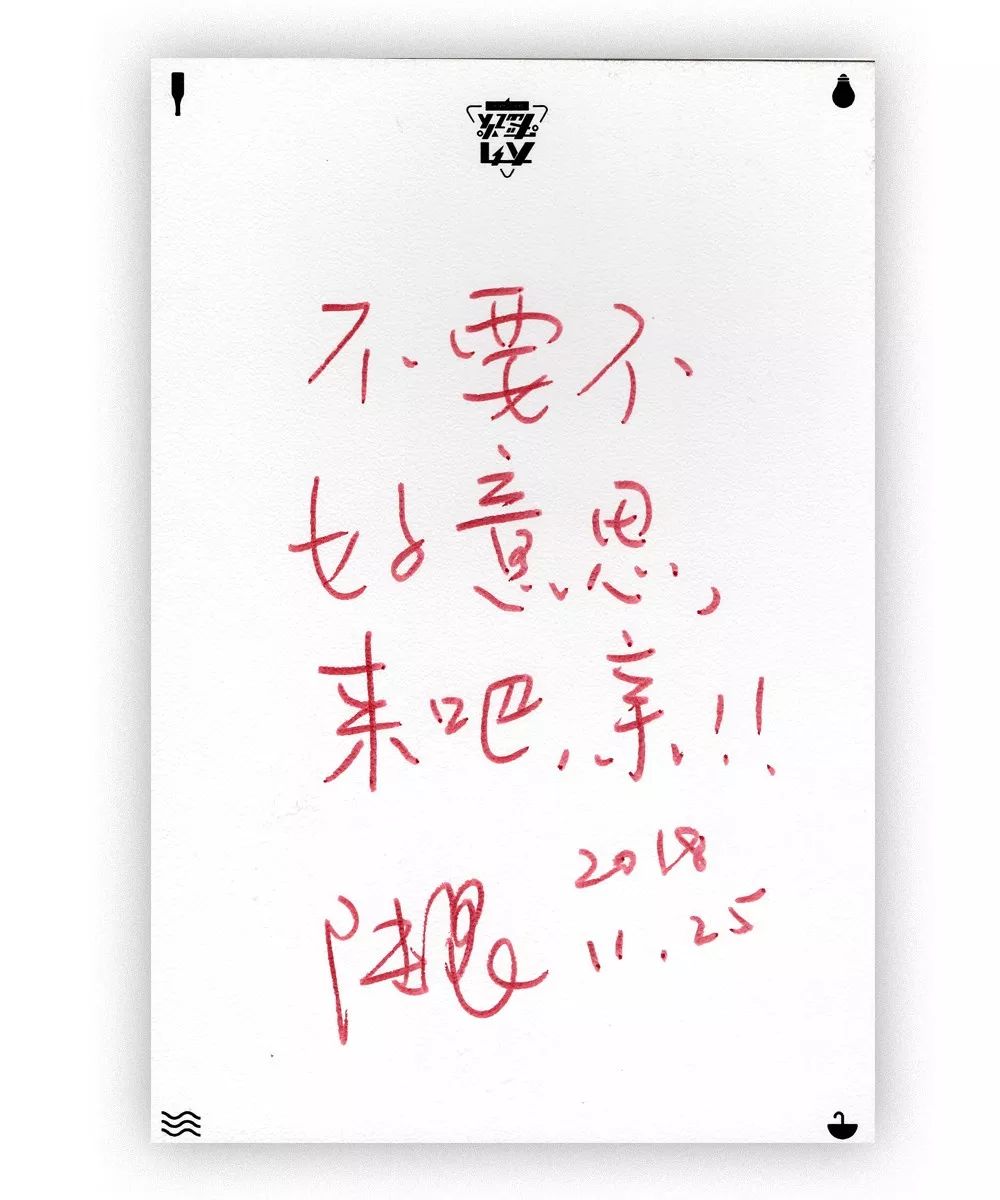 不要不
好意思,
来吧,亲!!
2018
陆琨
11.25